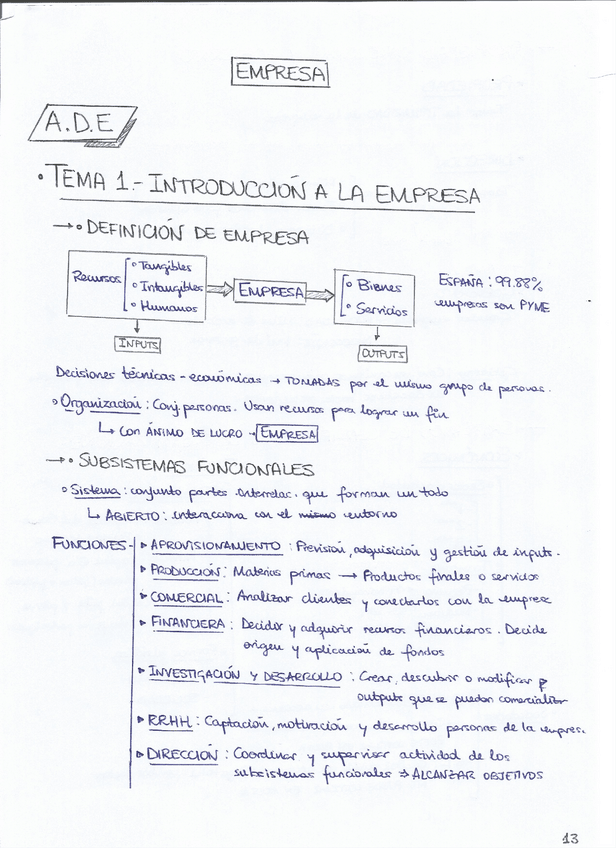 EMPRESA
A.D.E
• TEMA 1.- INTRODUCCIÓN A LA EMPRESA
→ • DEFINICIÓN DE EMPRESA
Recursos
• Tangibles
• Intangibles
• Humanos
EMPRESA
• Bienes
• Servicios
ESPAÑA: 99.88%
empresas son PYME
INPUTS
OUTPUTS
Decisiones técnicas - económicas → TOMADAS por el mismo grupo de personas.
• Organización: Conj. personas. Usan recursos para lograr un fin
↳ Con ÁNIMO DE LUCRO → EMPRESA
→ • SUBSISTEMAS FUNCIONALES
• Sistema: conjunto partes interrelac. que forman un todo
↳ ABIERTO: interacciona con el mismo entorno
FUNCIONES -
▸ APROVISIONAMIENTO: Previsión, adquisición y gestión de inputs.
▸ PRODUCCIÓN: Materias primas → Productos finales o servicios
▸ COMERCIAL: Analizar clientes y conectarlos con la empresa
▸ FINANCIERA: Decidir y adquirir recursos financieros. Decide
origen y aplicación de fondos
▸ INVESTIGACIÓN Y DESARROLLO: Crear, descubrir o modificar
outputs que se puedan comercializar
▸ RRHH: Captación, motivación y desarrollo personas de la empres.
▸ DIRECCIÓN: Coordinar y supervisar actividad de los
subsistemas funcionales ⇒ ALCANZAR OBJETIVOS
13